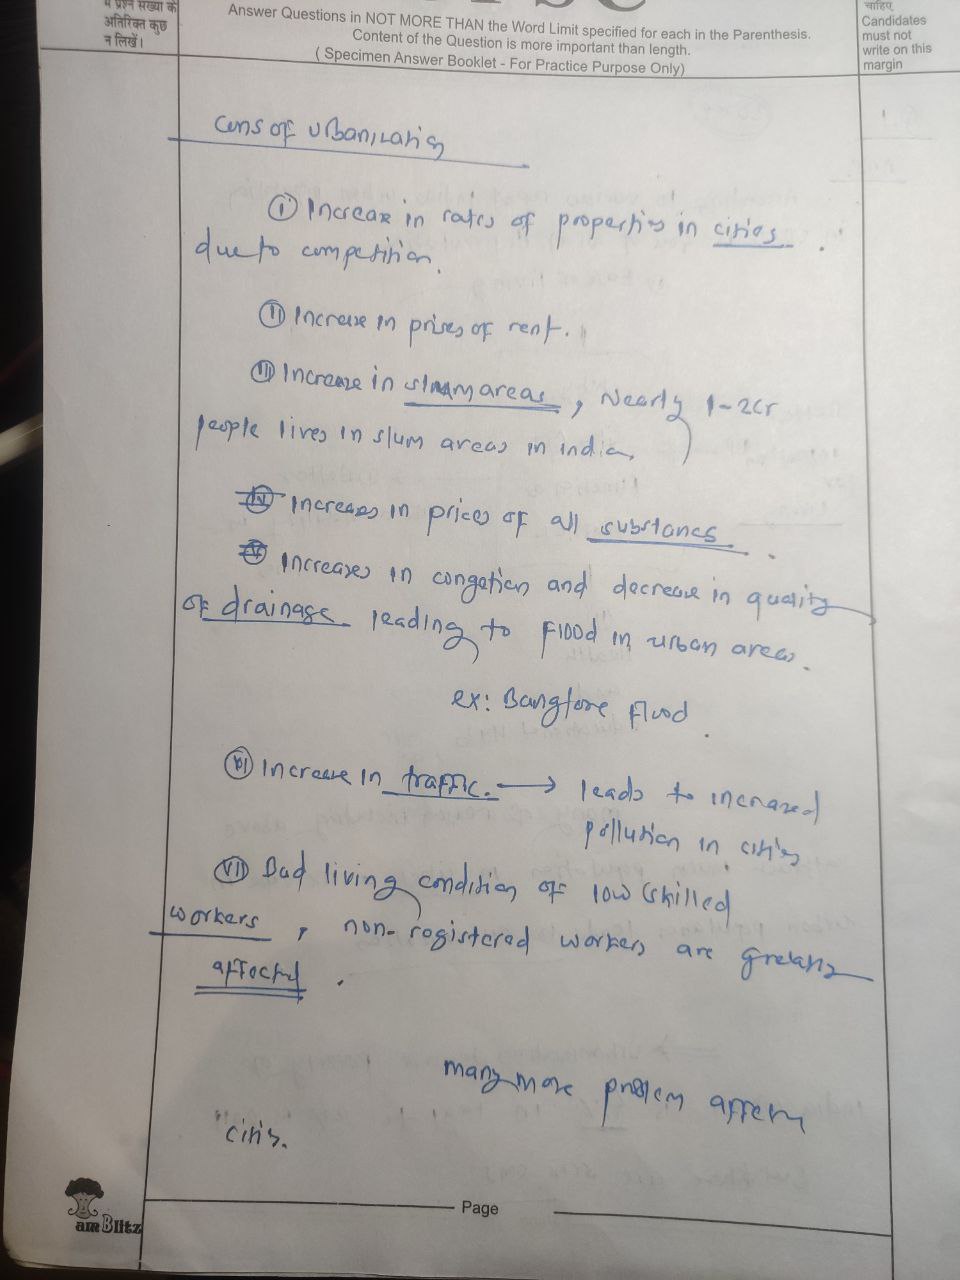 में प्रश्न संख्या के
अतिरिक्त कुछ
न लिखें।
Answer Questions in NOT MORE THAN the Word Limit specified for each in the Parenthesis.
Content of the Question is more important than length.
( Specimen Answer Booklet - For Practice Purpose Only)
चाहिए
Candidates
must not
write on this
margin
Cons of Urbanization
(i) Increase in rates of properties in cities.
due to competition.
(ii) Increase in prises of rent.
(iii) Increase in slum areas, Nearly 1-2cr
people lives in slum areas in india,
(iv) Increases in prices of all substances.
(v) Increases in congetion and decrease in quality
of drainage leading to Flood in urban areas.
ex: Banglore Flood.
(vi) Increase in traffic. → leads to increased
pollution in cities
(vii) Bad living condition of low skilled
workers, non-registered workers are greatly
affected.
many more problem affecting
"citis.
Page
am Blitz